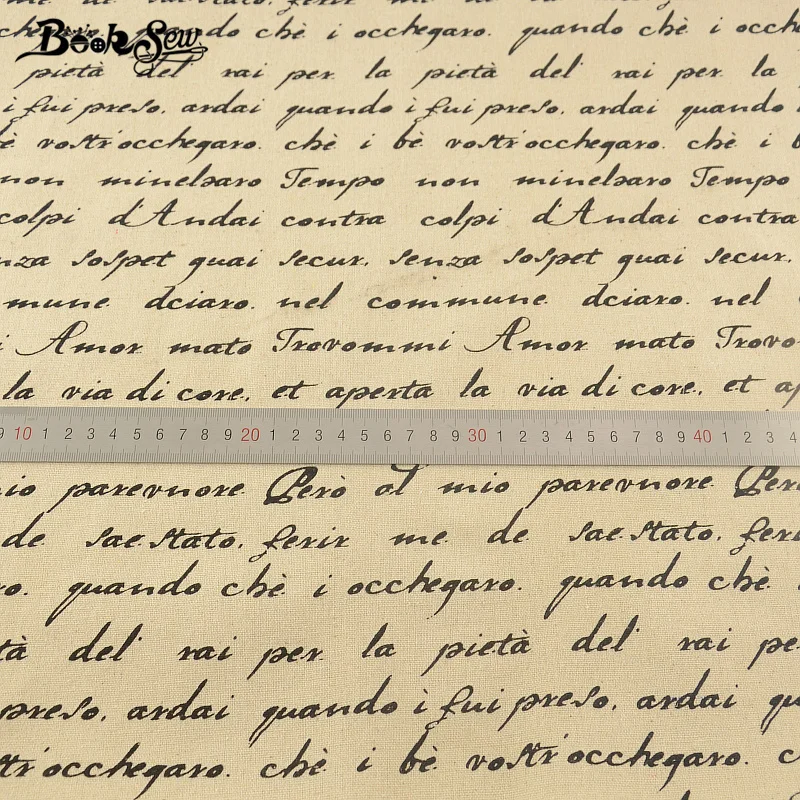 me de sae stato, ferir me de sae stato, ferir
Book Sew
chè i occhegaro. quando chè i occhegaro. quando chè i occh
pietà del' rai per la pietà del' rai per la
i fui preso, ardai quando i fui preso, ardai quando i
è vostr'occhegaro. chè i bè vostr'occhegaro. chè i b
non minelsaro Tempo non minelsaro Tempo
colpi d'Andai contra colpi d'Andai contra
nza sospet guai secur, senza sospet guai secur,
mmune dciaro. nel commune dciaro. nel
i Amor mato Trovommi Amor mato Trovo
la via di core, et aperta la via di core, et ap
9 10 1 2 3 4 5 6 7 8 9 20 1 2 3 4 5 6 7 8 9 30 1 2 3 4 5 6 7 8 9 40 1 2 3 4
mio parevnore. Però al mio parevnore. Però
de sae stato, ferir me de sae stato, feri
ro. quando chè i occhegaro. quando chè
tà del' rai per la pietà del' rai pe
preso, ardai quando i fui preso, ardai qu
tr'occhegaro. chè i bè vostr'occhegaro. c